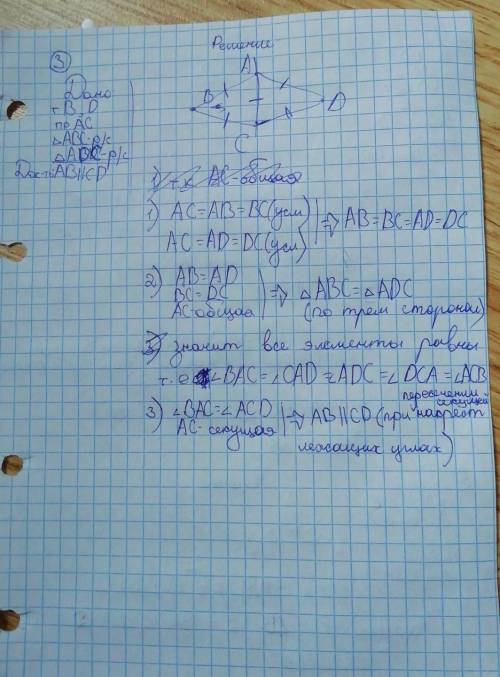 Решение
3
Дано
т. В и D
по AC
△ABC-р/с
△ADC-р/с
Док-ть: AB||CD
A
B
D
C
1) т.к AC-общая
1) AC=AB=BC(усл)
AC=AD=DC(усл)
⇒ AB=BC=AD=DC
2) AB=AD
BC=DC
AC-общая
⇒ △ABC=△ADC
(по трем сторонам)
3) значит все элементы равны
т.е ∠BAC=∠CAD=∠ADC=∠DCA=∠ACB
3) ∠BAC=∠ACD
AC-секущая
⇒ AB||CD (при пересечении секущей накрест
лежащих углах)